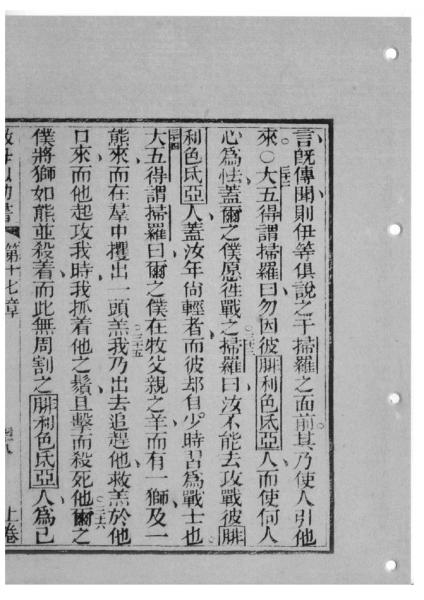 言既傳聞則伊等俱說之于掃羅之面前其乃使人引他
來○三十二大五得謂掃羅曰勿因彼腓利色氐亞人而使何人
心為怯蓋爾之僕愿徃戰之三十三掃羅曰汝不能去攻戰彼腓
利色氐亞人蓋汝年尙輕者而彼却自少時習為戰士也
三十四大五得謂掃羅曰爾之僕在牧父親之羊而有一獅及一
熊來而在羣中攫出一頭羔三十五我乃出去追趕他救羔於他
口來而他起攻我時我抓着他之鬚且擊而殺死他三十六爾之
僕將獅如熊並殺着而此無周割之腓利色氐亞人為已
第十七章 上卷